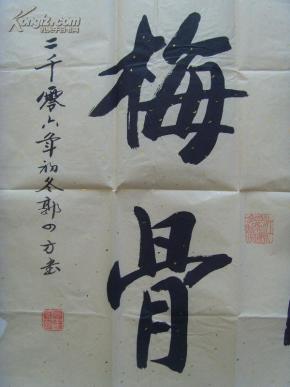 梅骨
二千零六年初冬郭四方书
孔夫子旧书网
Kongfz.com